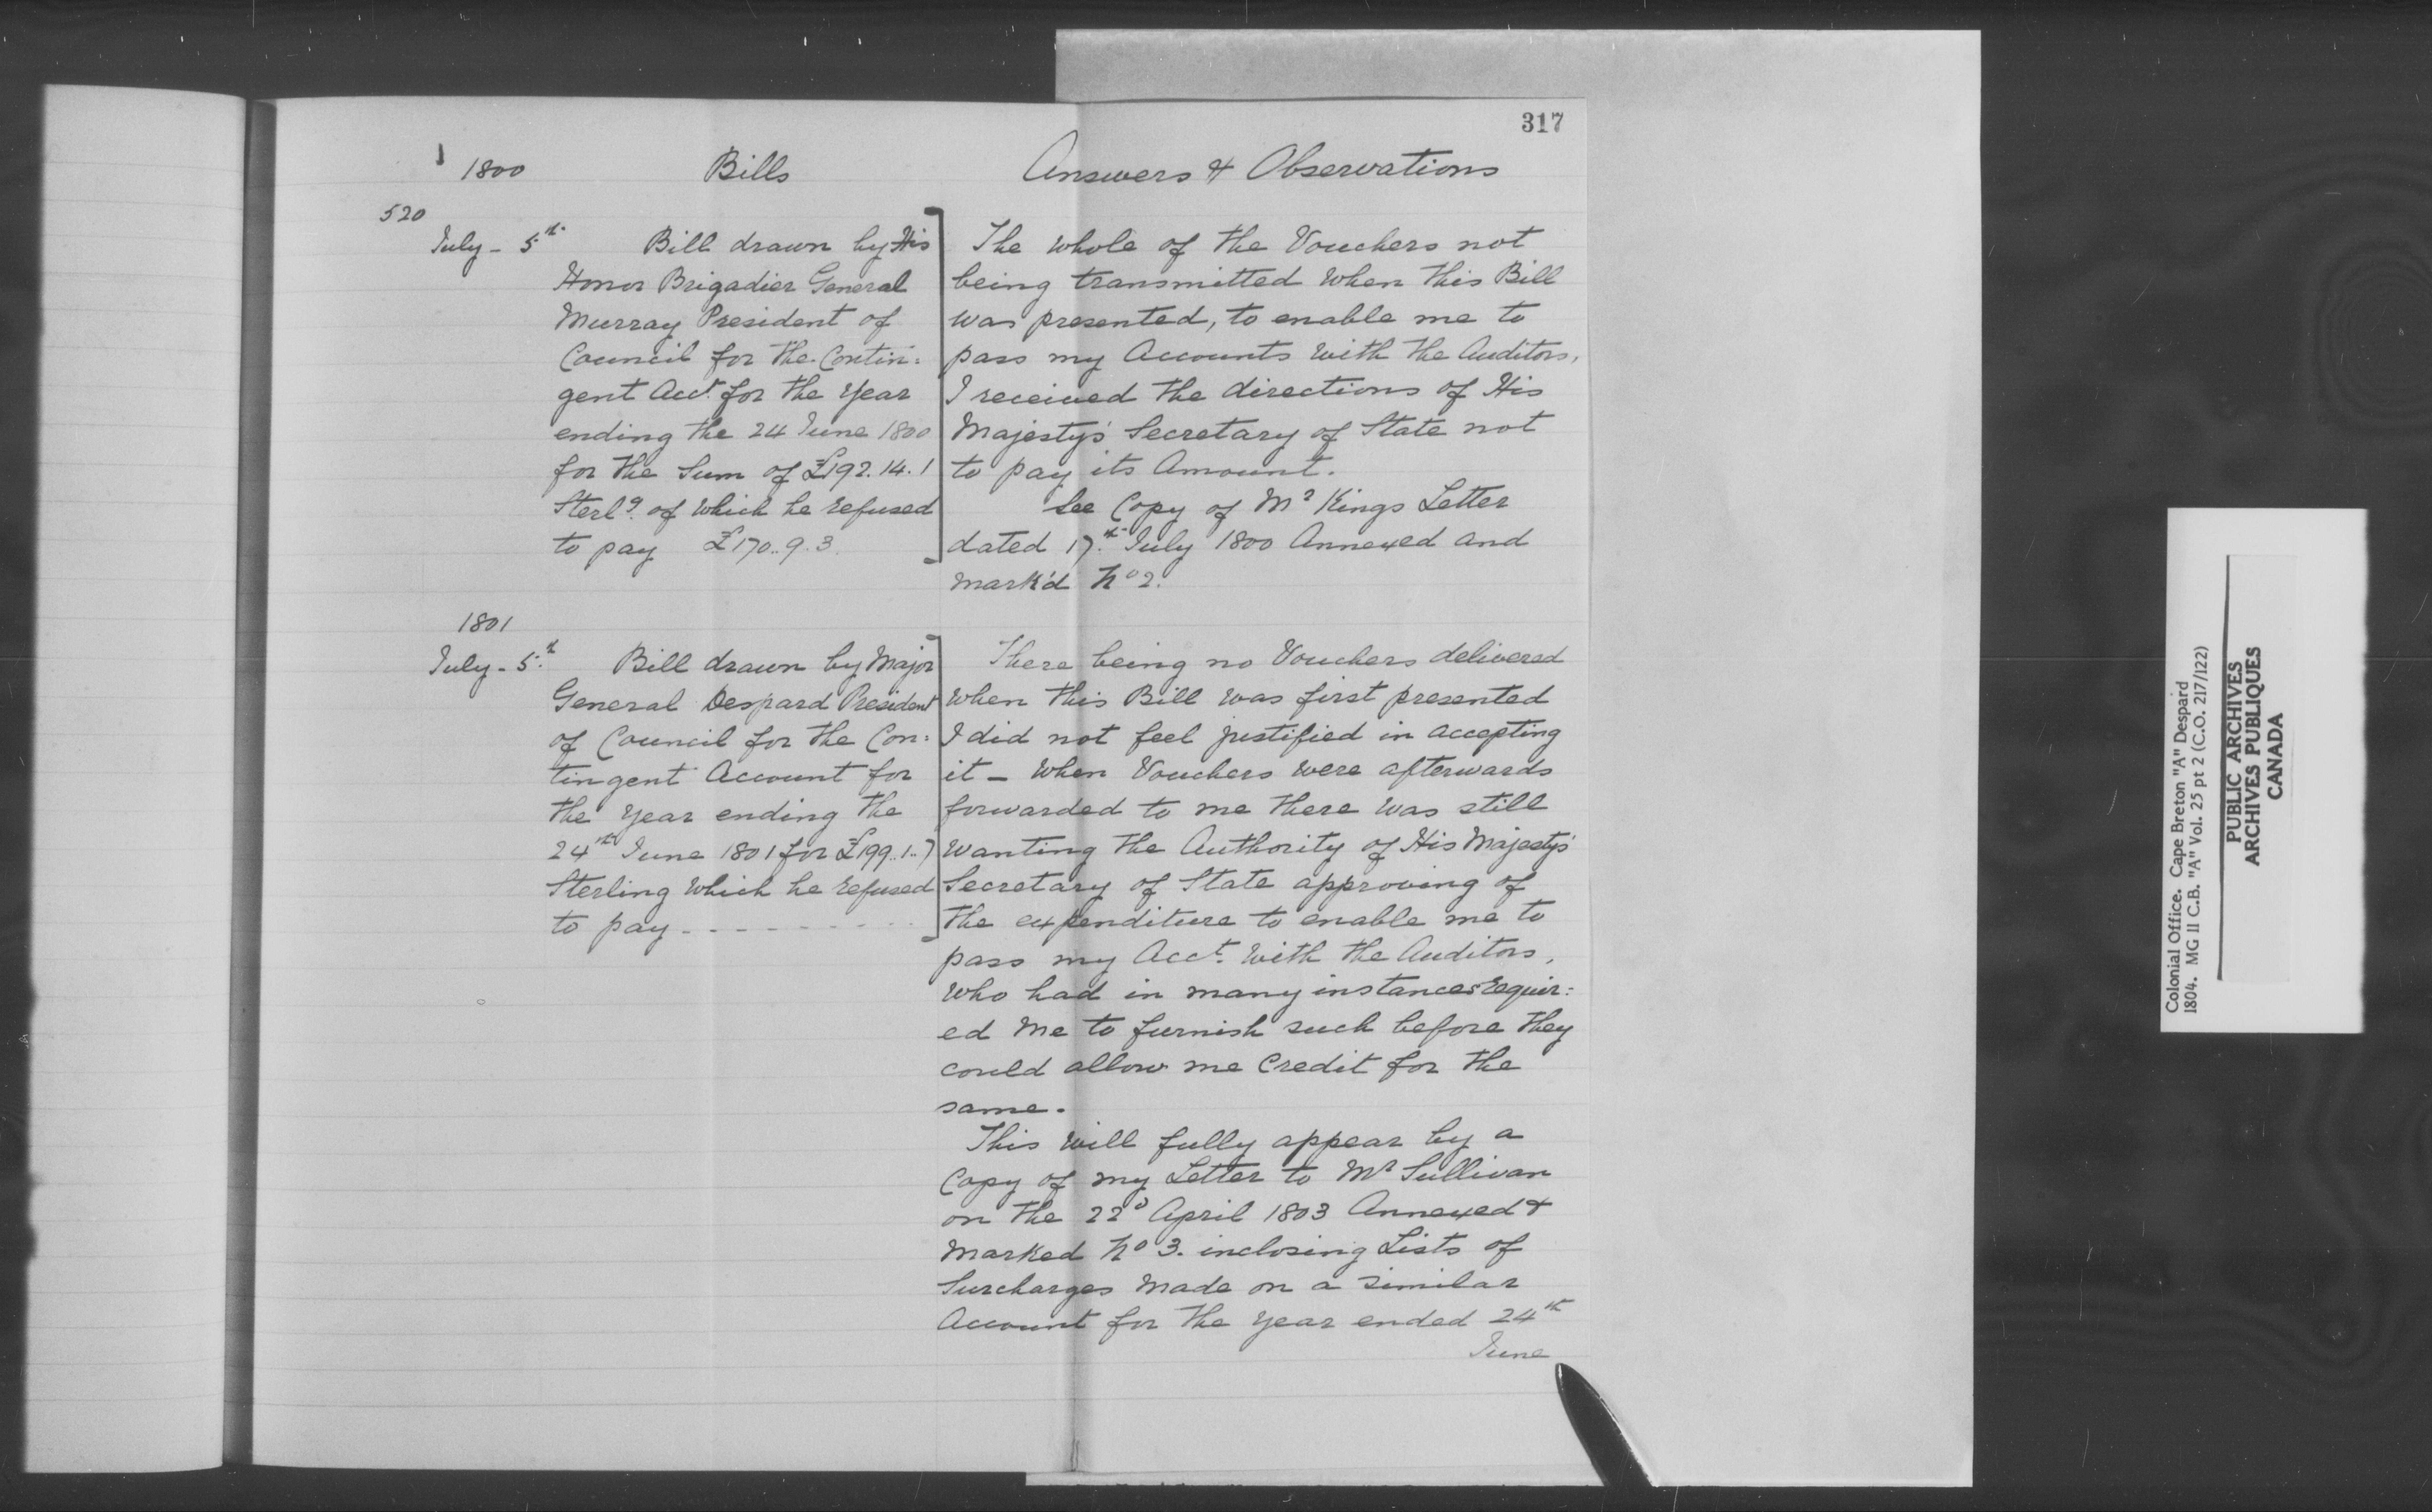 317
1800 Bills Answers & Observations
520
July - 5th Bill drawn by His
Honor Brigadier General
Murray President of
Council for the Contin:
gent Acct. for the Year
ending the 24 June 1800
for the Sum of £192.14.1
Sterlg. of which he refused
to pay £170..9.3.
The whole of the Vouchers not
being transmitted when this Bill
was presented, to enable me to
pass my Accounts with the Auditors,
I received the directions of His
Majesty's Secretary of State not
to pay its Amount.
See Copy of Mr Kings Letter
dated 17th July 1800 Annexed and
mark'd No 2.
1801
July - 5th Bill drawn by Major
General Despard President
of Council for the Con:
tingent Account for
the Year ending the
24th June 1801 for £199..1..7
Sterling which he refused
to pay - - - - - - - - -
There being no Vouchers delivered
when this Bill was first presented
I did not feel justified in accepting
it - When Vouchers were afterwards
forwarded to me there was still
wanting the Authority of His Majesty's
Secretary of State approving of
the expenditure to enable me to
pass my Acct. with the Auditors,
who had in many instances requir:
ed me to furnish such before they
could allow me Credit for the
same.
This will fully appear by a
Copy of my Letter to Mr Sullivan
on the 22d April 1803 Annexed &
marked No 3. inclosing Lists of
Surcharges made on a similar
Account for the Year ended 24th
June
Colonial Office. Cape Breton "A" Despard
1804. MG 11 C.B. "A" Vol. 25 pt 2 (C.O. 217/122)
PUBLIC ARCHIVES
ARCHIVES PUBLIQUES
CANADA